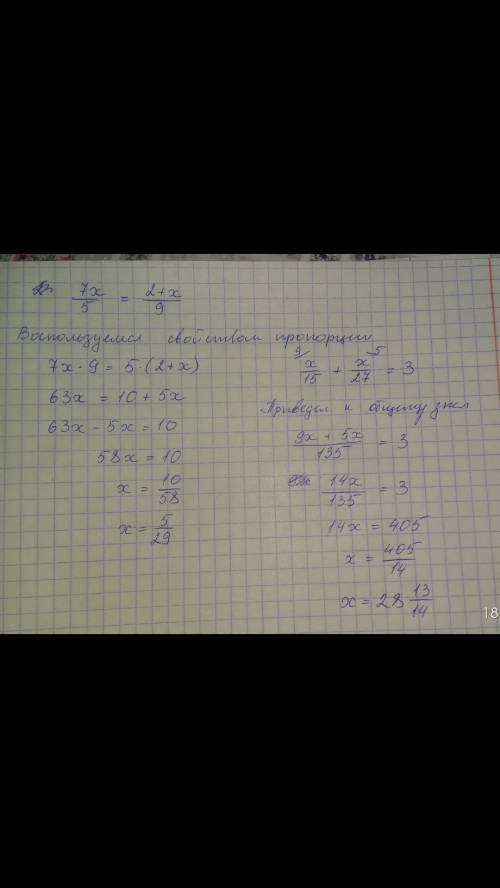 7x/5 = 2+x/9
Воспользуемся свойством пропорции
7x·9 = 5·(2+x)
63x = 10+5x
63x-5x=10
58x = 10
x = 10/58
x = 5/29
9 5
x/15 + x/27 = 3
Приведем к общему
9x + 5x/135 = 3
14x/135 = 3
14x = 405
x = 405/14
x = 28 13/14
18